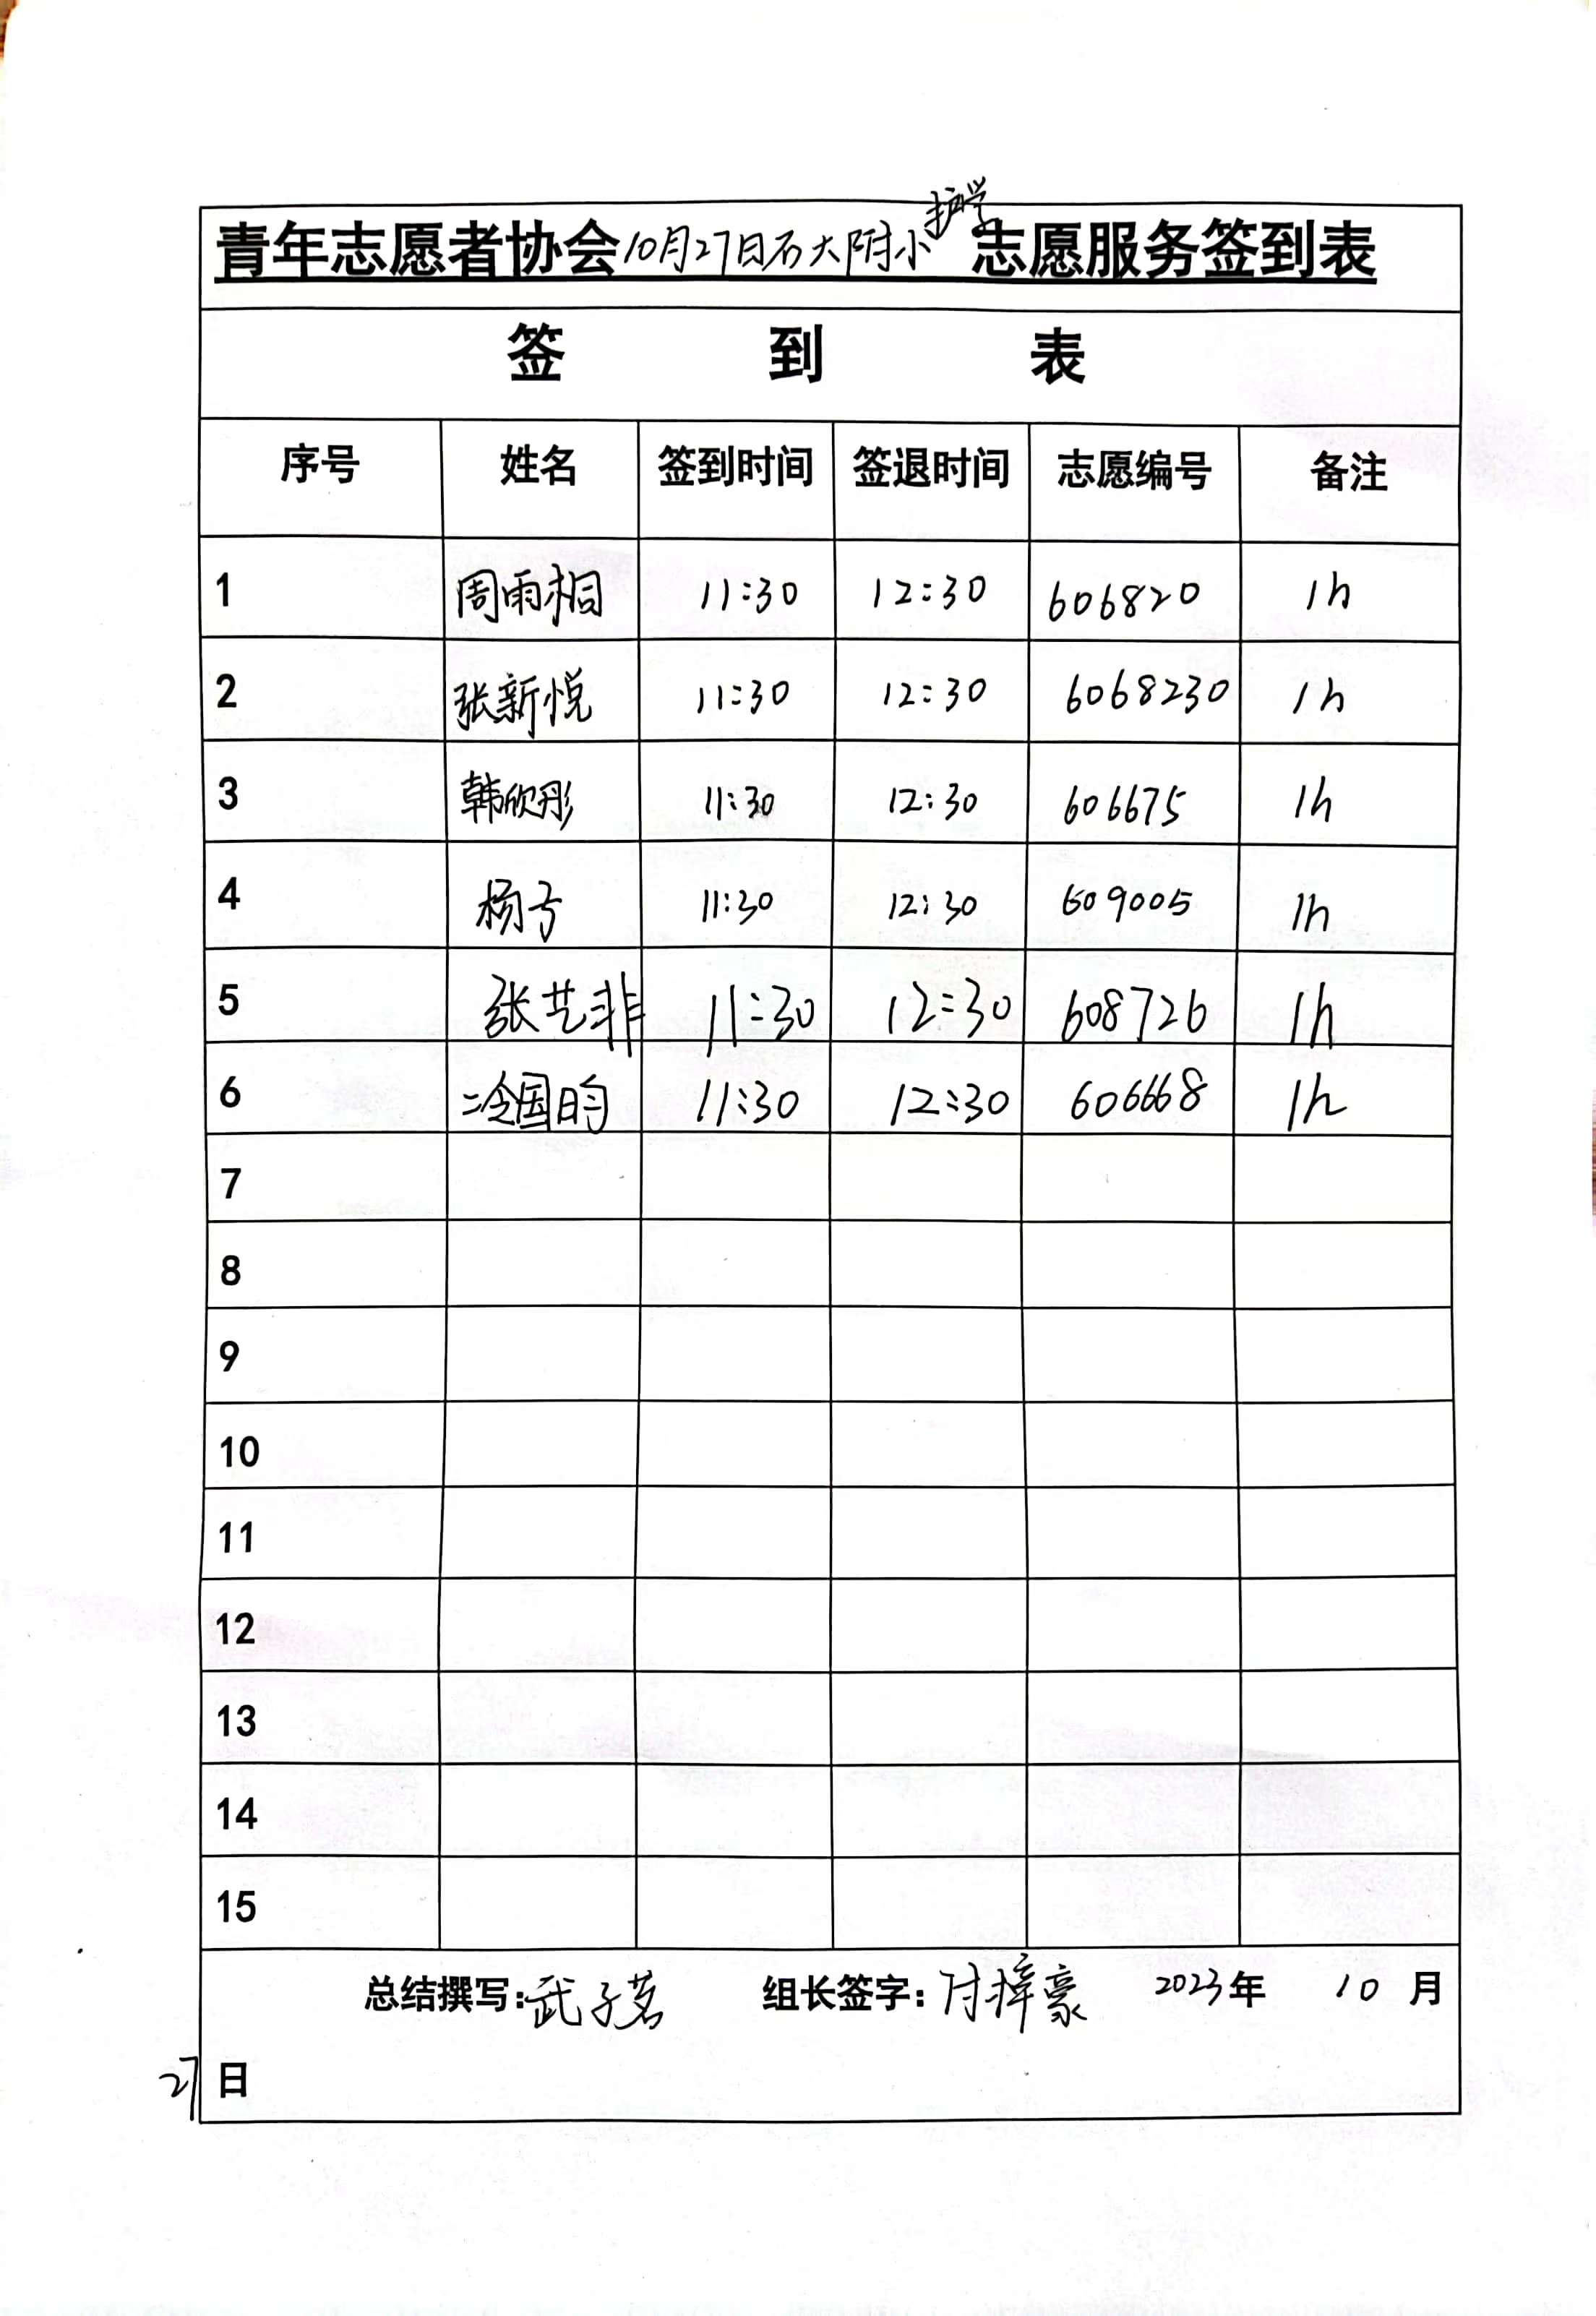 青年志愿者协会10月27日石大附小护学志愿服务签到表
签 到 表
序号 姓名 签到时间 签退时间 志愿编号 备注
1 周雨桐 11:30 12:30 606820 1h
2 张新悦 11:30 12:30 6068230 1h
3 韩欣彤 11:30 12:30 606675 1h
4 杨 11:30 12:30 609005 1h
5 张艺非 11:30 12:30 608726 1h
6 冷国昀 11:30 12:30 606668 1h
7
8
9
10
11
12
13
14
15
总结撰写：武子茗 组长签字：付梓豪 2023年 10 月
27日